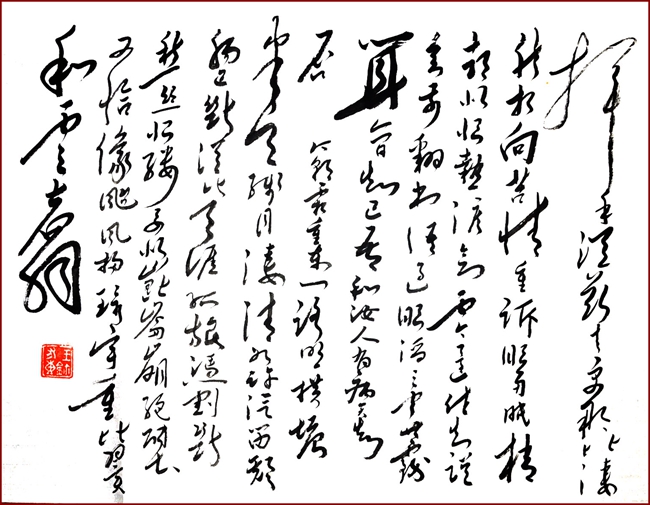 挥手從兹去更那堪凄
然相向苦情重訴眼角眉梢
都似恨熱淚欲零還住知誤
會前翻书語過眼滔滔雲共霧
算人间知己吾和汝人有病天知
否 今朝霜重東门路照横塘
半天残月凄清如許汽笛一声
肠已断從此天涯孤旅凭割断
愁丝恨缕要似崑崙崩絕壁
又恰像颱风扫寰宇重比翼
和雲翥